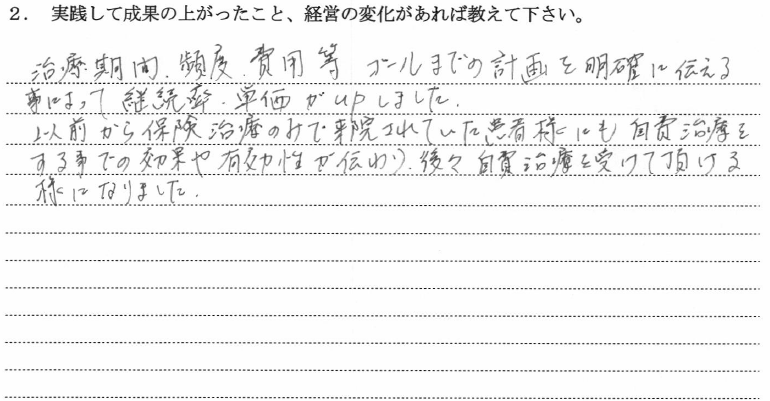 2. 実践して成果の上がったこと、経営の変化があれば教えて下さい。
治療期間、頻度、費用等 ゴールまでの計画を明確に伝える
事によって継続率、単価がupしました。
以前から保険治療のみで来院されていた患者様にも自費治療を
する事での効果や有効性が伝わり、後々自費治療を受けて頂ける
様になりました。